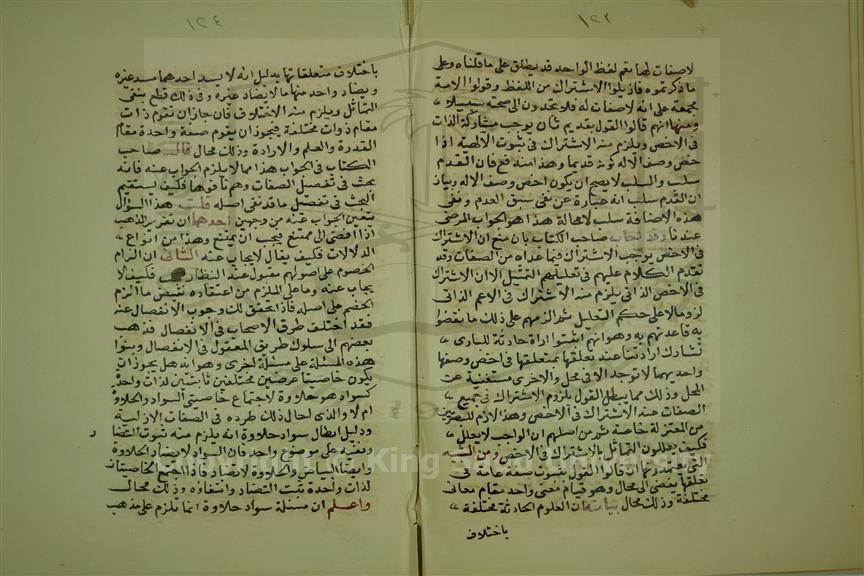 ١٢٣
لاصفات لها نعم لفظ الواحد قد يطلق على ما قلناه وعلى
ما ذكرتموه فازيلوا الاشتراك من اللفظ وقولوا الامة
مجمعة على انه لاصفات له فلا تجدون الى صحته سبيلا
ومنها انهم قالوا القول بقديم ثان يوجب مشاركة الذات
فى الاخص ويلزم منه الاشتراك فى ثبوت الالهية اذا
خص وصف الاله كونه قديما وهذا مندفع فان القدم
سلب والسلب لا يصح ان يكون اخص وصف الاله وبيان
ان القدم سلب انه عبارة عن نفى سبق العدم ونفى
هذه الاضافة سلب لامحالة هذا هو الجواب المرضى
عندنا وقد اجاب صاحب الكتاب بان منع ان الاشتراك
فى الاخص يوجب الاشتراك فيما عداه من الصفات وقد
تقدم الكلام عليهم فى تعليلهم التمثيل الا ان الاشتراك
فى الاخص الذاتى يلزم منه الاشتراك فى الاعم الذاتى
لزوما لا على حكم التعليل ثم الزمهم على ذلك ما نقضوا
به قاعدتهم به وهو انهم اثبتوا ارادة حادثة للبارى
تشارك ارادتنا عند تعلقها بمتعلقها فى اخص وصفها
واحديهما لا توجد الا فى محل والاخرى مستغنية عن
المحل وذلك مما يبطل القول بلزوم الاشتراك فى جميع
الصفات عند الاشتراك فى الاخص وهذا الازم للبصريين
من المعتزلة خاصة ثم من اصلهم ان الواجب لا يعلل
فكيف يعللون التماثل بالاشتراك فى الاخص ومن الشبه
التى يعتمدونها ان قالوا القول بثبوت صفة عامة فى
تعلقها يفضى الى محال وهو قيام معنى واحد مقام معانى
مختلفة وذلك محال بيانه ان العلوم الحادثة مختلفة
باختلاف
١٢٤
باختلاف متعلقاتها بدليل انه لا يسد احدهما مسد غيره
ويضاد واحد منها ما لا يضاد غيره وفى ذلك قطع بنفى
التماثل ويلزم منه الاختلاف فان جاز ان تقوم ذات
مقام ذوات مختلفة فيجوز ان يقوم صفة واحدة مقام
القدرة والعلم والارادة وذلك محال قال صاحب
الكتاب فى الجواب هذا مما لا يلزم الجواب عنه فانه
بحث فى تفصيل الصفات وهم نافوها فكيف يستقيم
البحث فى تفصيل ما قد نفى اصله قلت هذا السؤال
يتعين الجواب عنه من وجهين احدهما ان تقرير المذهب
اذا افضى الى ممتنع فيجب ان يمتنع وهذا من انواع
الدلالات فكيف يقال لا يجاب عنه الثانى ان الزام
الخصوم على اصولهم مقبول عند النظار فكيف لا
يجاب عنه وما على الملزم من اعتقاده نقيض ما الزم
الخصم على اصله فاذا تحقق لك وجوب الانفصال عنه
فقد اختلف طرق الاصحاب فى الانفصال فذهب
بعضهم الى سلوك طريق المعقول فى الانفصال وبنوا
هذه المسئلة على مسئلة اخرى وهو انه هل يجوز ان
يكون خاصيتا عرضين مختلفين ثابتين لذات واحدة
كسواد هو حلاوة لاجتماع خاصيتى السواد والحلاوة
ام لا والذى احال ذلك طرده فى الصفات الازلية
ودليل ابطال سواد حلاوة انه يلزم منه ثبوت التضاد
ونفيه على موضوع واحد فان السواد لا يضاد الحلاوة
وايضا البياض والحلاوة لا يتضاد فاذا اجتمع الخاصيتان
لذات واحدة ثبت التضاد وانتفاؤه وذلك محال
واعلم ان مسئلة سواد حلاوة انما تلزم على مذهب